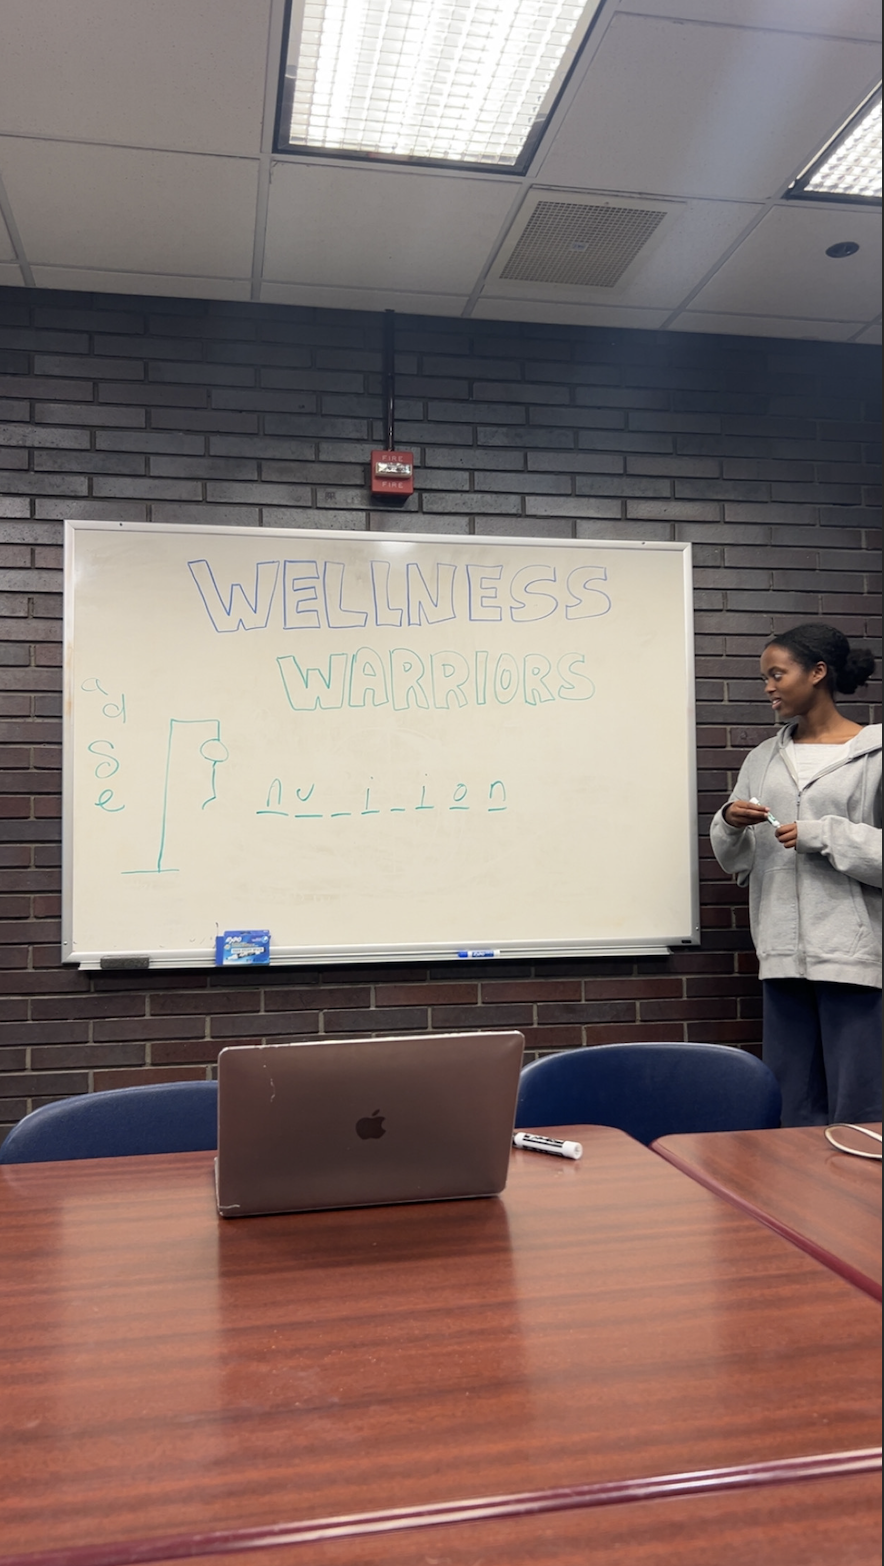 FIRE
FIRE
WELLNESS
WARRIORS
a
d
S
e
n u _ _ i _ i o n
EXPO
EXPO